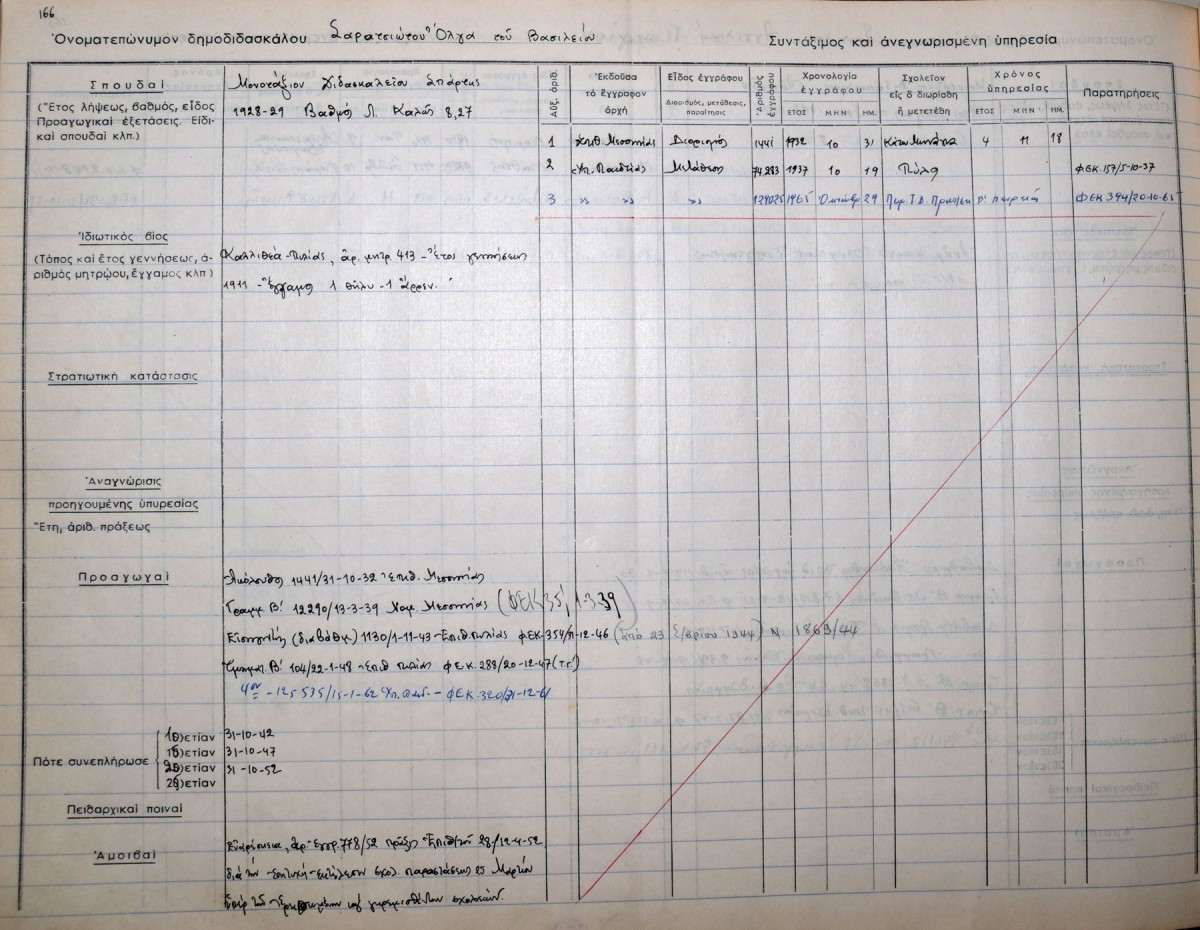 166
Ὀνοματεπώνυμον δημοδιδασκάλου Σαρατσιώτου Ὄλγα τοῦ Βασιλείου
Συντάξιμος καὶ ἀνεγνωρισμένη ὑπηρεσία
Σπουδαί
(Ἔτος λήψεως, βαθμός, εἶδος
Προαγωγικαὶ ἐξετάσεις. Εἰδι-
καὶ σπουδαὶ κλπ.)
Μονοτάξιον Διδασκαλεῖον Σπάρτης
1928-29 Βαθμὸς Λ. Καλῶς 8,27
Αὔξ. ἀριθ.
Ἐκδοῦσα
τὸ ἔγγραφον
ἀρχή
Εἶδος ἐγγράφου
Διορισμός, μετάθεσις,
παραίτησις
Ἀριθμὸς
ἐγγράφου
Χρονολογία
ἐγγράφου
ΕΤΟΣ ΜΗΝ ΗΜ.
Σχολεῖον
εἰς ὃ διωρίσθη
ἢ μετετέθη
Χρόνος
ὑπηρεσίας
ΕΤΟΣ ΜΗΝ ΗΜ.
Παρατηρήσεις
1 Ἐπιθ. Μεσσηνίας Διορισμός 1441 1932 10 31 Κάτω Μηνάγια 4 11 18
2 Ὑπ. Παιδείας Μετάθεσις 74.283 1937 10 19 Πύλα ΦΕΚ 157/5-10-37
3 » » » 129025 1965 29 ΦΕΚ 394/20-10-65
Ἰδιωτικὸς βίος
(Τόπος καὶ ἔτος γεννήσεως, ἀ-
ριθμὸς μητρῴου, ἔγγαμος κλπ)
Καλλιθέα-Πυλίας, ἀρ. μητρ. 413 - Ἔτος γεννήσεως
1911 - Ἔγγαμος 1 θῆλυ - 1 ἄρρεν.
Στρατιωτικὴ κατάστασις
Ἀναγνώρισις
προηγουμένης ὑπυρεσίας
Ἔτη, ἀριθ. πράξεως
Προαγωγαί
Ἀκόλουθος 1441/31-10-32 Ἐπιθ. Μεσσηνίας
Γραμμ. Β' 12290/13-3-39 Νομ. Μεσσηνίας (ΦΕΚ 35, 1-3-39)
Εἰσηγητής (διαβάθμ) 1130/1-11-43 - Ἐπιθ. Πυλίας ΦΕΚ-354/31-12-46 (ἀπὸ 23 1944) Ν. 1869/44
Τμηματ. Β' 104/22-1-48 Ἐπιθ Πυλίας ΦΕΚ. 288/20-12-47 (τ.Γ')
4ον - 125535/15-1-62 - ΦΕΚ. 320/21-12-61
Πότε συνεπλήρωσε
10)ετίαν 31-10-42
15)ετίαν 31-10-47
20)ετίαν 31-10-52
25)ετίαν
Πειθαρχικαὶ ποιναί
Ἀμοιβαί
Εὐαρέσκεια, ἀρ. ἐγγρ. 778/52 πρᾶξις Ἐπιθ/τοῦ 28/12-4-52
διὰ τὴν ἐπιτυχῆ ἐκτέλεσιν σχολ. παραστάσεως 25 Μαρτίου
ὑπὲρ τῶν